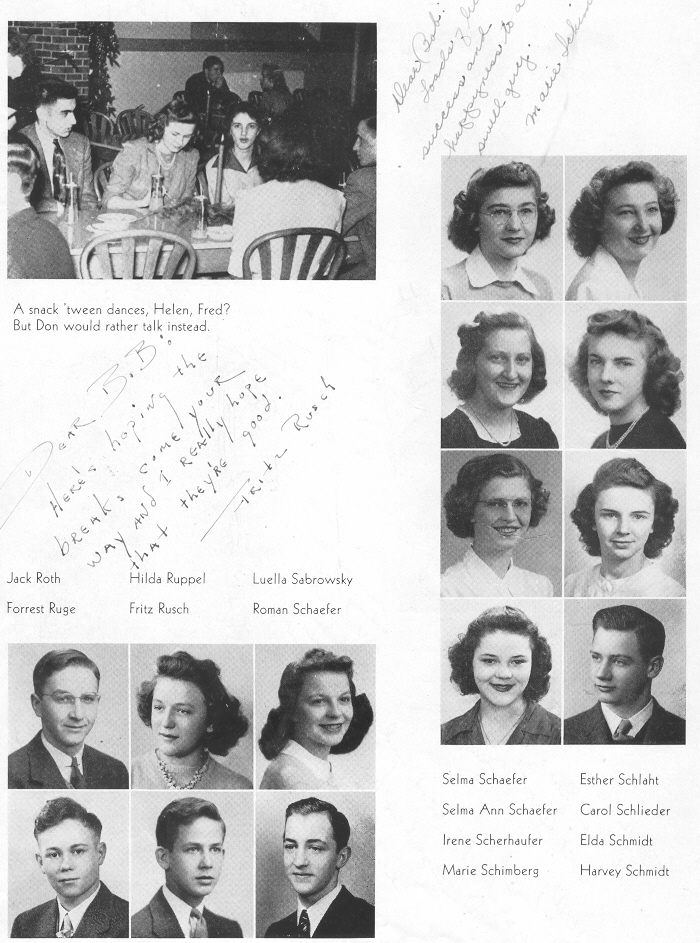 Dear Bob:
Loads of
success and
happyness to a
swell guy.
Marie
A snack 'tween dances, Helen, Fred?
But Don would rather talk instead.
Dear B.B:
Here's hoping the
breaks come your
way and I really hope
that they're good.
Fritz Rusch
Jack Roth Hilda Ruppel Luella Sabrowsky
Forrest Ruge Fritz Rusch Roman Schaefer
Selma Schaefer Esther Schlaht
Selma Ann Schaefer Carol Schlieder
Irene Scherhaufer Elda Schmidt
Marie Schimberg Harvey Schmidt